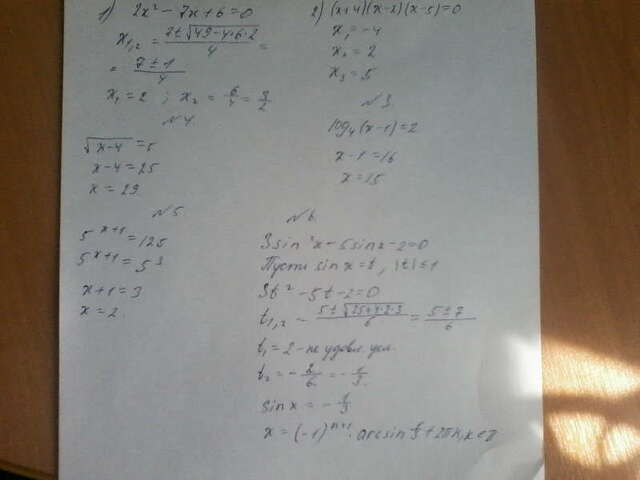 1) 2x² - 7x + 6 = 0
x₁,₂ = (7 ± √(49 - 4·6·2))/4 =
= (7 ± 1)/4
x₁ = 2 ; x₂ = 6/4 = 3/2
2) (x+4)(x-2)(x-5) = 0
x₁ = -4
x₂ = 2
x₃ = 5
№3
log₄(x-1) = 2
x - 1 = 16
x = 15
№4
√(x-4) = 5
x - 4 = 25
x = 29
№5
5^(x+1) = 125
5^(x+1) = 5³
x + 1 = 3
x = 2
№6
3sin²x - 5sinx - 2 = 0
Пусть sinx = t, |t| ≤ 1
3t² - 5t - 2 = 0
t₁,₂ = (5 ± √(25+4·2·3))/6 = (5 ± 7)/6
t₁ = 2 - не удовл. усл.
t₂ = -2/6 = -1/3
sinx = -1/3
x = (-1)^(n+1) · arcsin 1/3 + 2πn, n ∈ Z